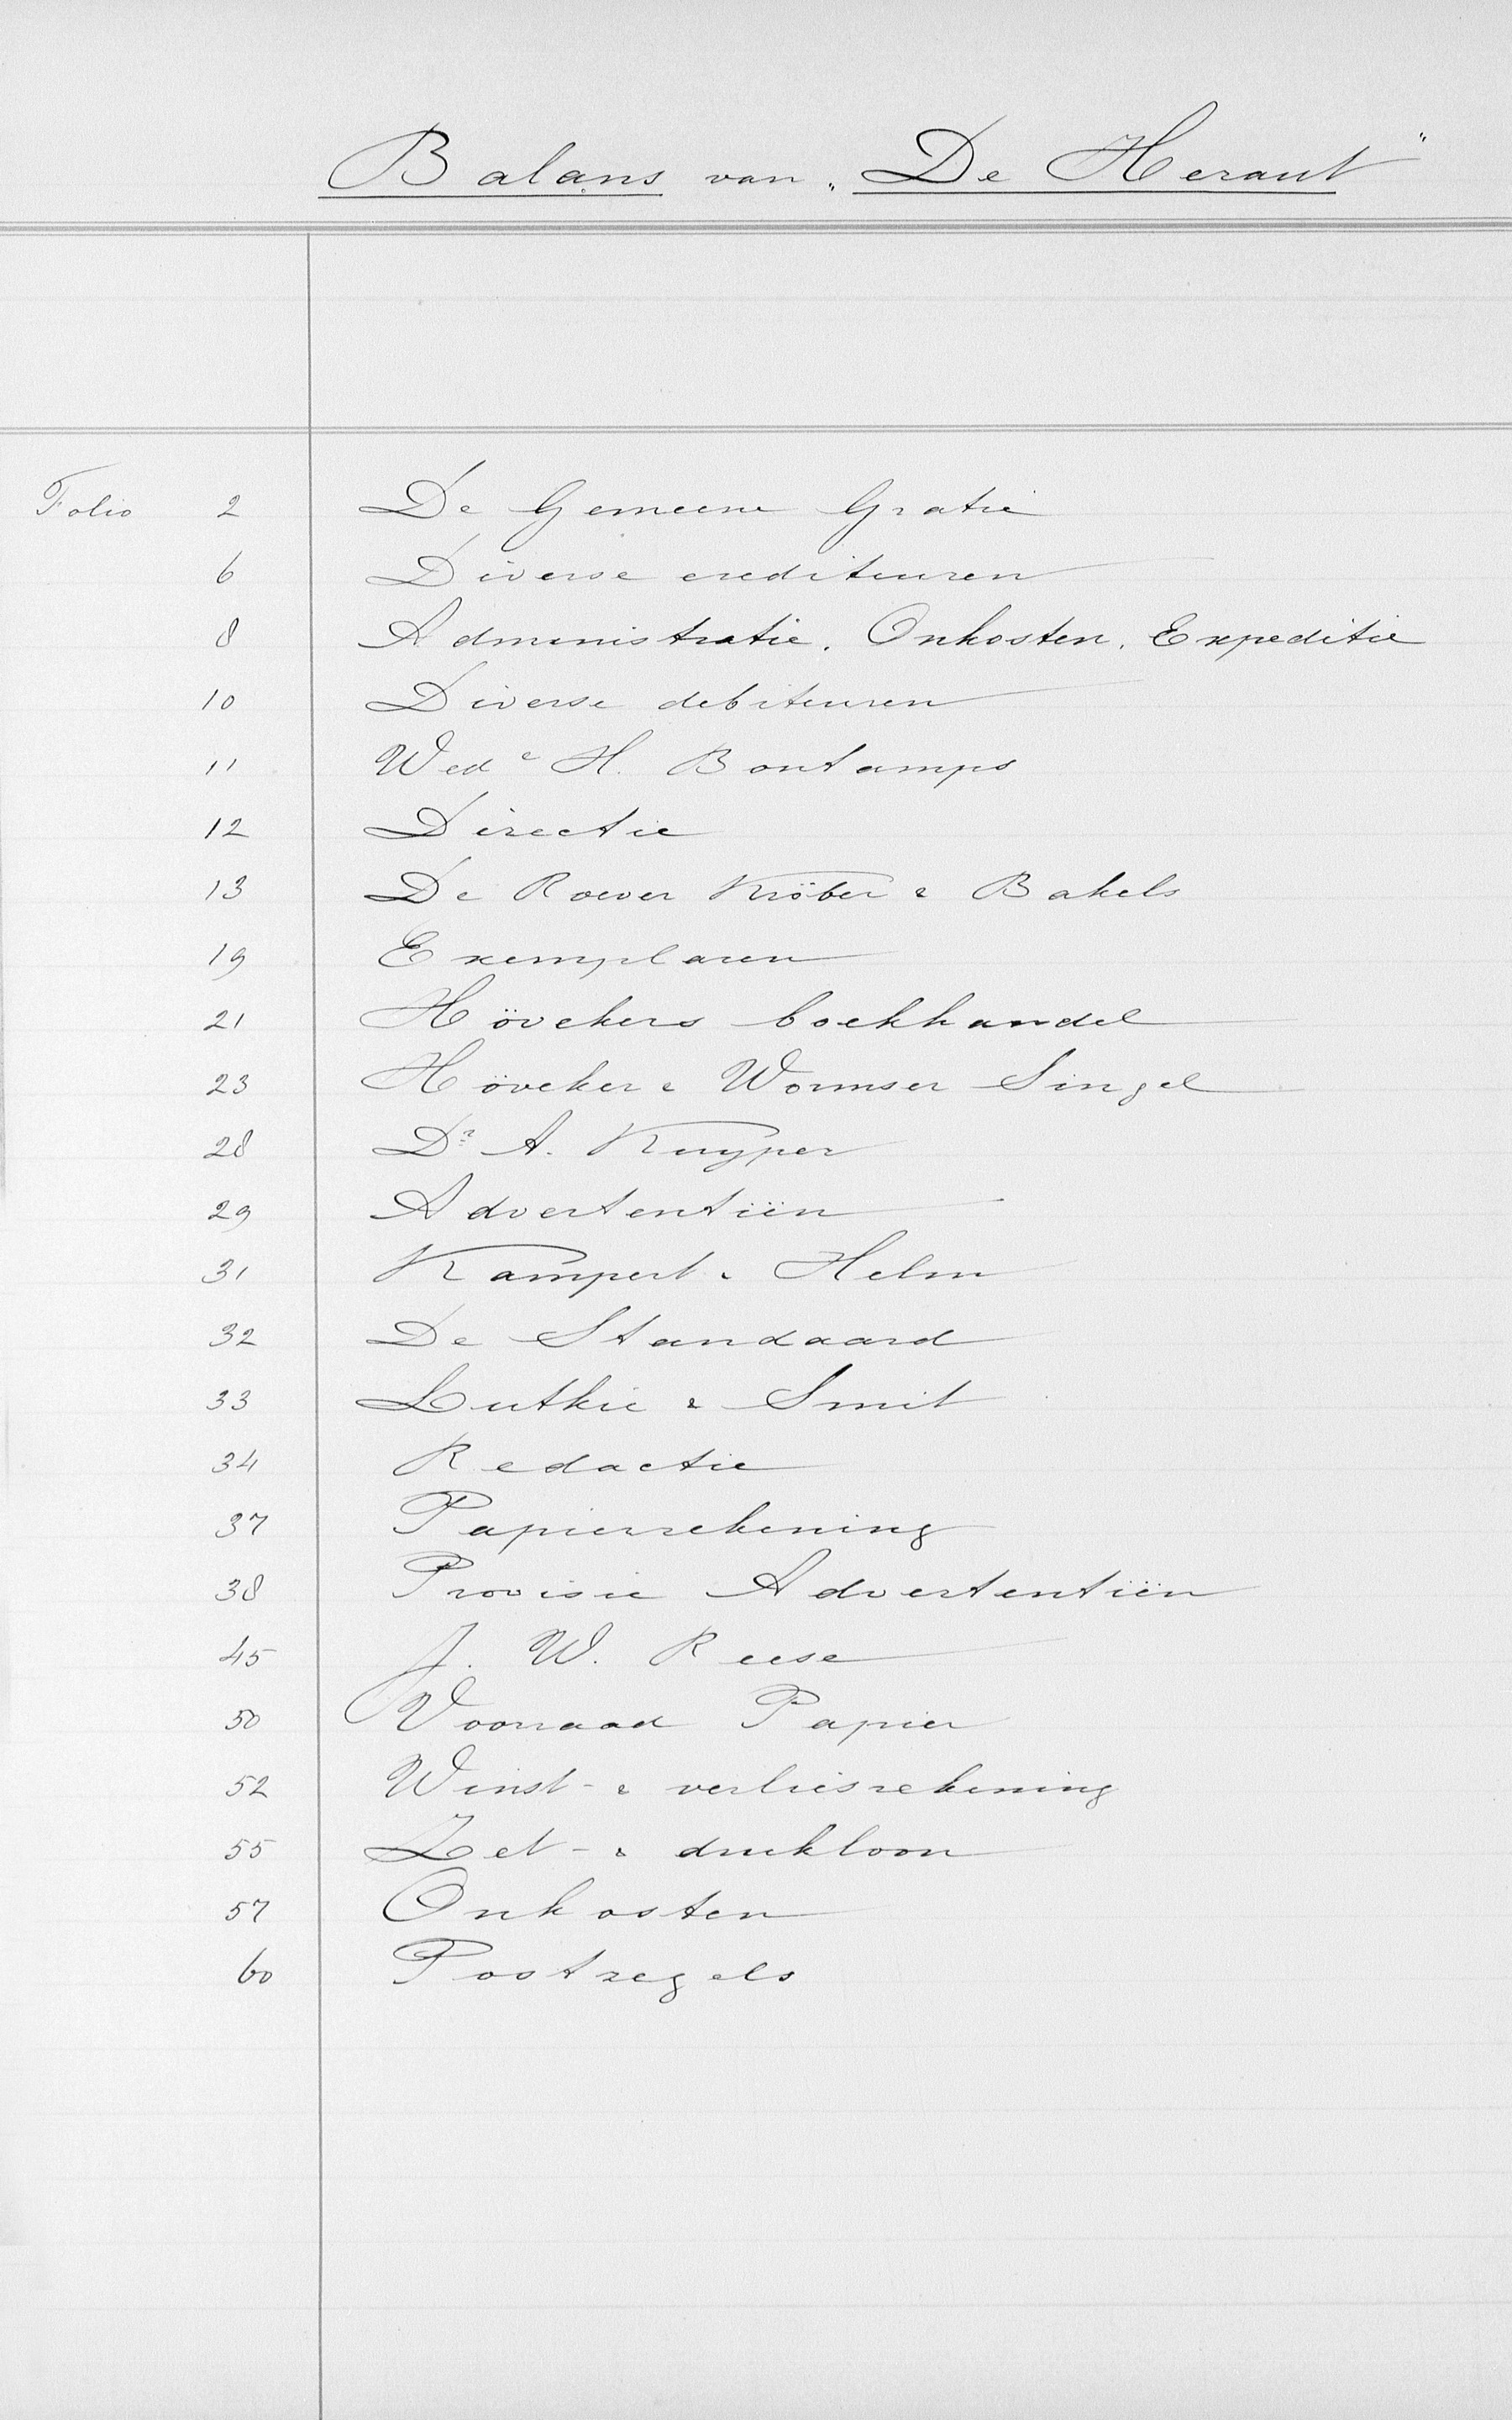 Balans van „De Heraut"
Folio 2 De Gemeene Gratie
6 Diverse crediteuren
8 Administratie. Onkosten. Expeditie
10 Diverse debiteuren
11 Wede H. Bontamps
12 Directie
13 De Roever Kröber & Bakels
19 Exemplaren
21 Hövekers boekhandel
23 Höveker & Wormser Singel
28 Dr A. Kuyper
29 Advertentiën
31 Kampert & Helm
32 De Standaard
33 Lutkie & Smit
34 Redactie
37 Papierrekening
38 Provisie Advertentiën
45 J. W. Reese
50 Voorraad Papier
52 Winst- & verliesrekening
55 Zet- & drukloon
57 Onkosten
60 Postzegels